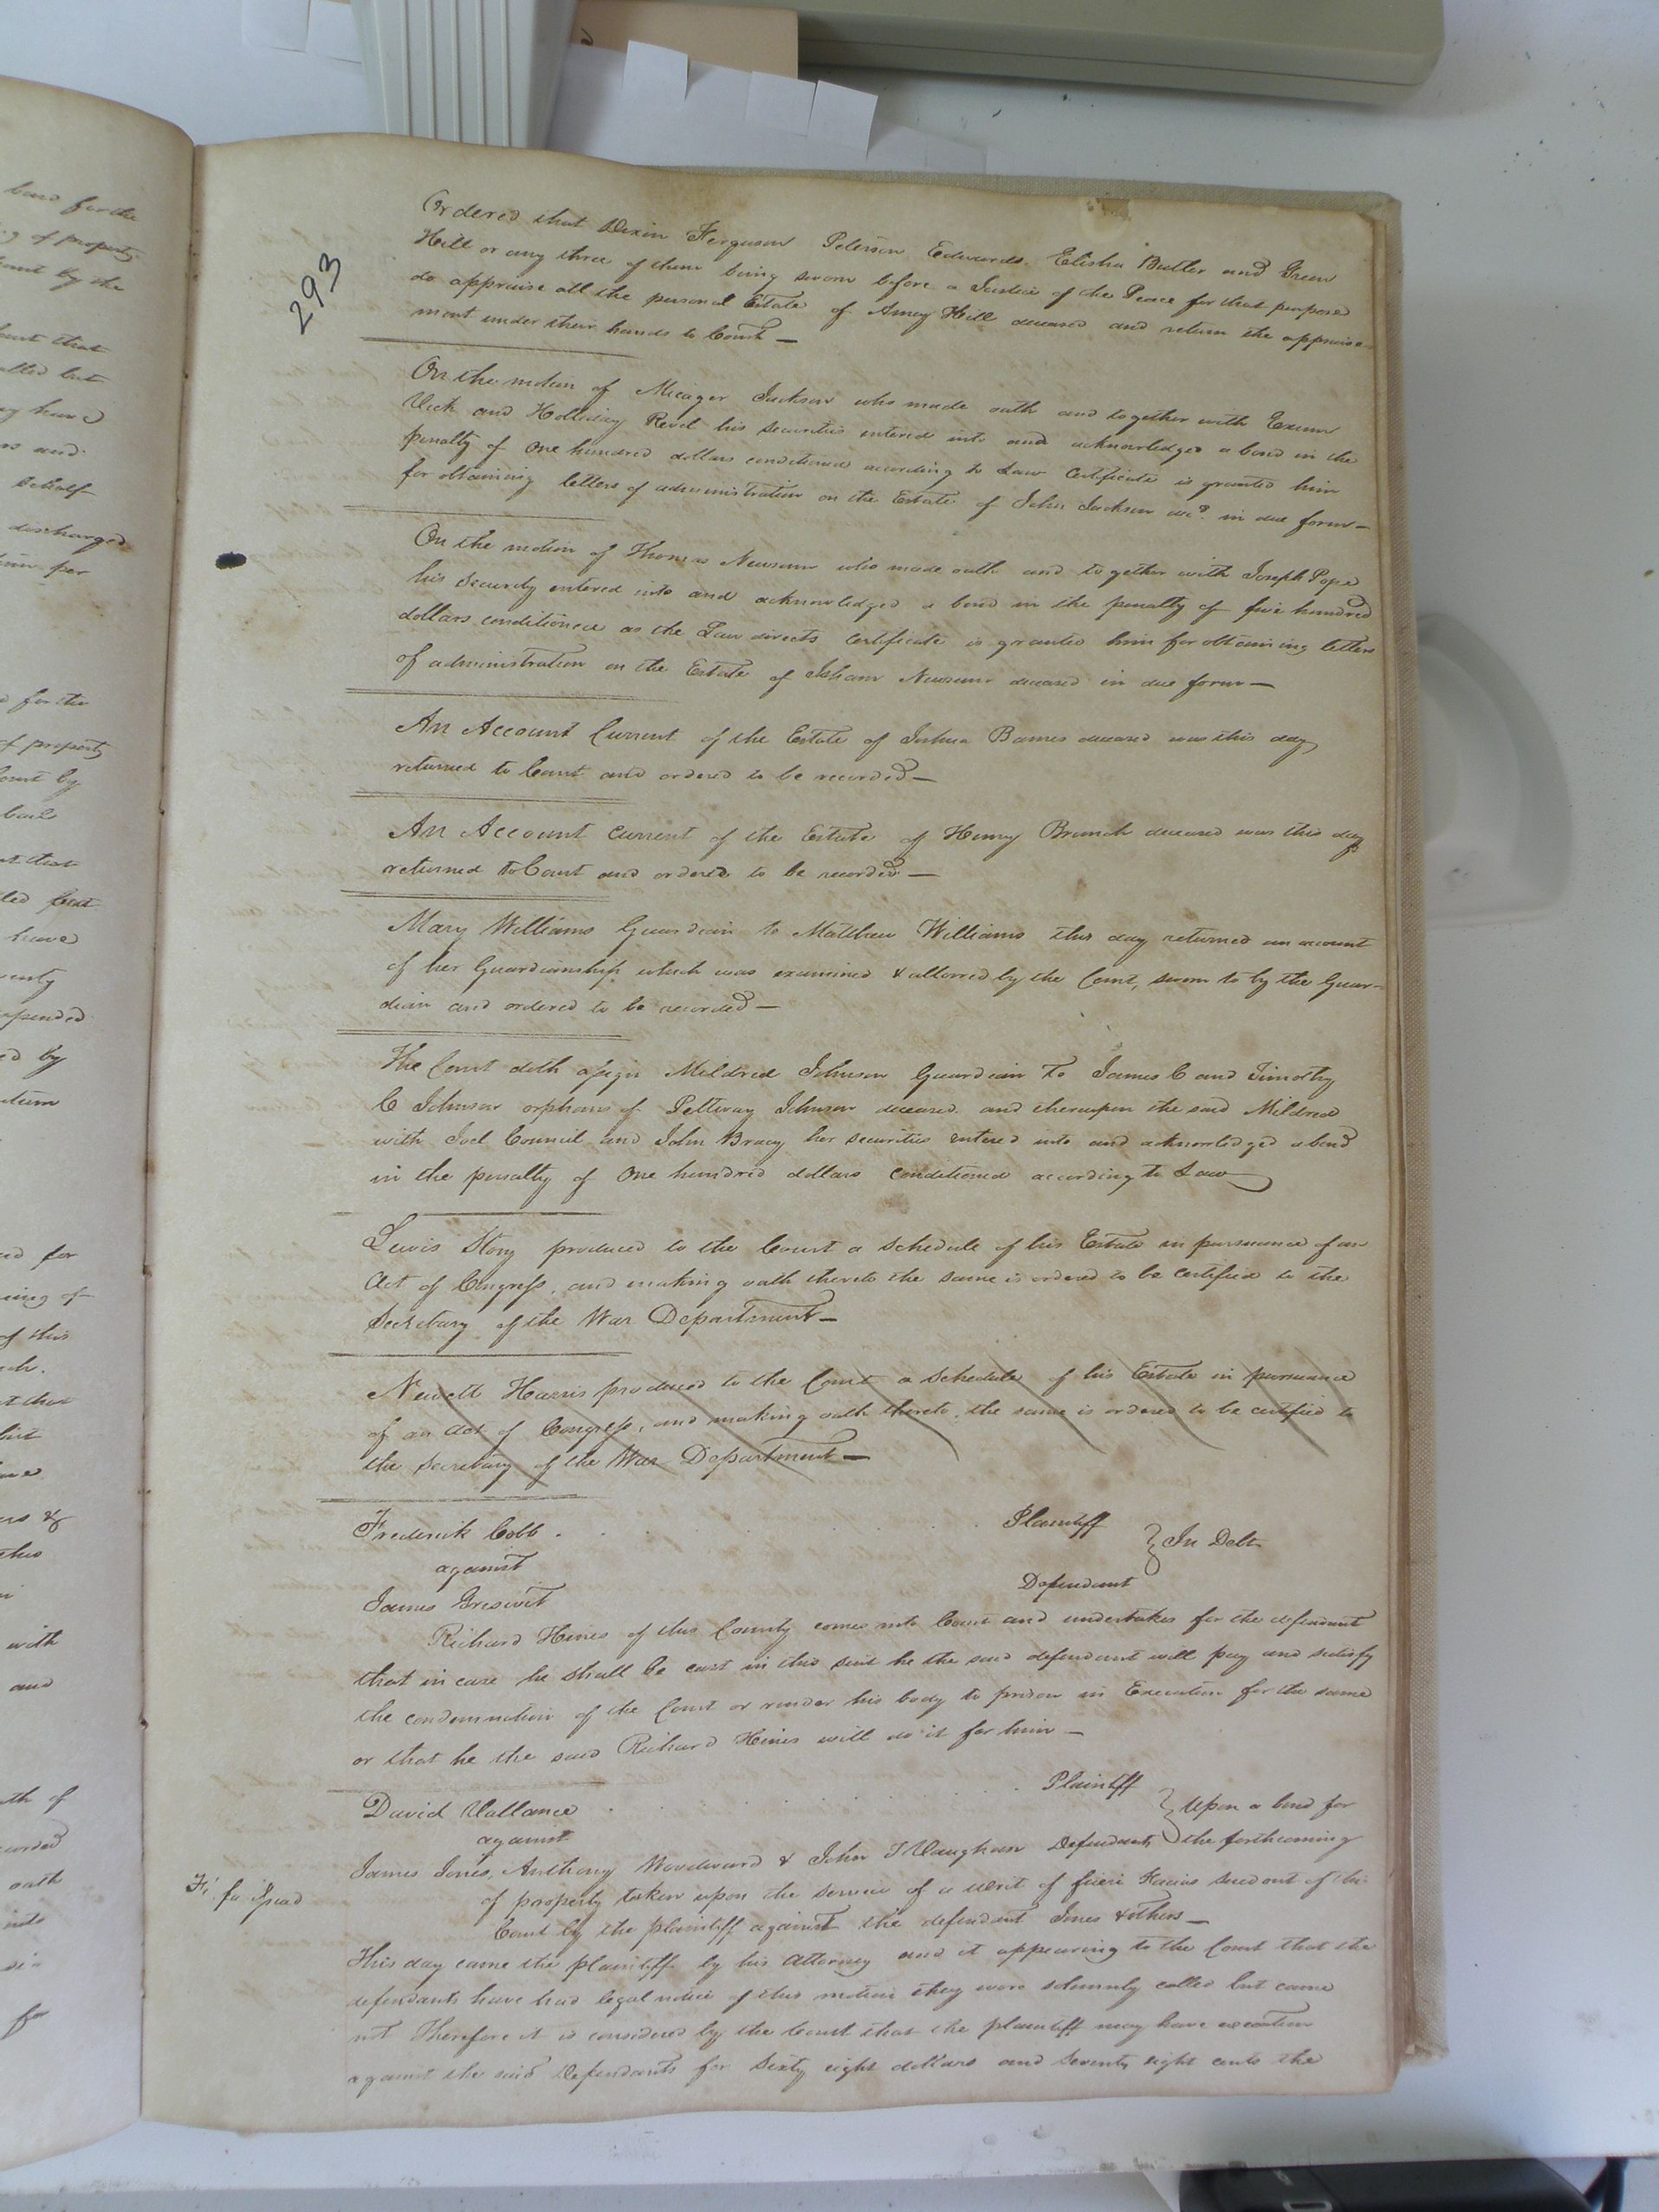 293
Ordered that Dixon Ferguson Peterson Edwards Elisha Butler and Green
Hill or any three of them being sworn before a Justice of the Peace for that purpose
do appraise all the personal Estate of Amey Hill deceased and return the appraise-
ment under their hands to Court —
On the motion of Micager Jackson who made oath and together with Exum
Vick and Holliday Revel his securities entered into and acknowledged a bond in the
penalty of One hundred dollars conditioned according to Law Certificate is granted him
for obtaining letters of administration on the Estate of John Jackson decd. in due form —
On the motion of Thomas Newsum who made oath and together with Joseph Pope
his Security entered into and acknowledged a bond in the penalty of five hundred
dollars conditioned as the Law directs Certificate is granted him for obtaining letters
of administration on the Estate of Isham Newsum deceased in due form —
An Account Current of the Estate of Joshua Barnes deceased was this day
returned to Court and ordered to be recorded —
An Account Current of the Estate of Henry Branch deceased was this day
returned to Court and ordered to be recorded —
Mary Williams Guardian to Matthew Williams this day returned an account
of her Guardianship which was examined & allowed by the Court, sworn to by the Guar-
dian and ordered to be recorded —
The Court doth assign Mildred Johnson Guardian to James C and Timothy
C Johnson orphans of Pettway Johnson deceased and thereupon the said Mildred
with Joel Council and John Bracy her securities entered into and acknowledged a bond
in the penalty of One hundred dollars conditioned according to Law
Lewis Story produced to the Court a Schedule of his Estate in pursuance of an
Act of Congress, and making oath thereto the same is ordered to be certified to the
Secretary of the War Department —
Newett Harris produced to the Court a Schedule of his Estate in pursuance
of an Act of Congress, and making oath thereto, the same is ordered to be certified to
the Secretary of the War Department —
Frederick Cobb . . . . . . Plaintiff
against } In Debt
James Greswit Defendant
Richard Hines of this County comes into Court and undertakes for the defendant
that in case he shall be cast in this suit he the said defendant will pay and satisfy
the condemnation of the Court or render his body to prison in Execution for the same
or that he the said Richard Hines will do it for him —
David Vallance . . . . . . Plaintiff
against } Upon a bond for
James Jones, Anthony Woodward & John T Vaughan Defendants } the forthcoming
of property taken upon the service of a Writ of fieri Facias sued out of this
Court by the plaintiff against the defendant Jones & others —
Fi fa Issued
This day came the plaintiff by his Attorney and it appearing to the Court that the
defendants have had legal notice of this motion they were solemnly called but came
not Therefore it is considered by the Court that the plaintiff may have execution
against the said Defendants for Sixty eight dollars and Seventy eight cents the